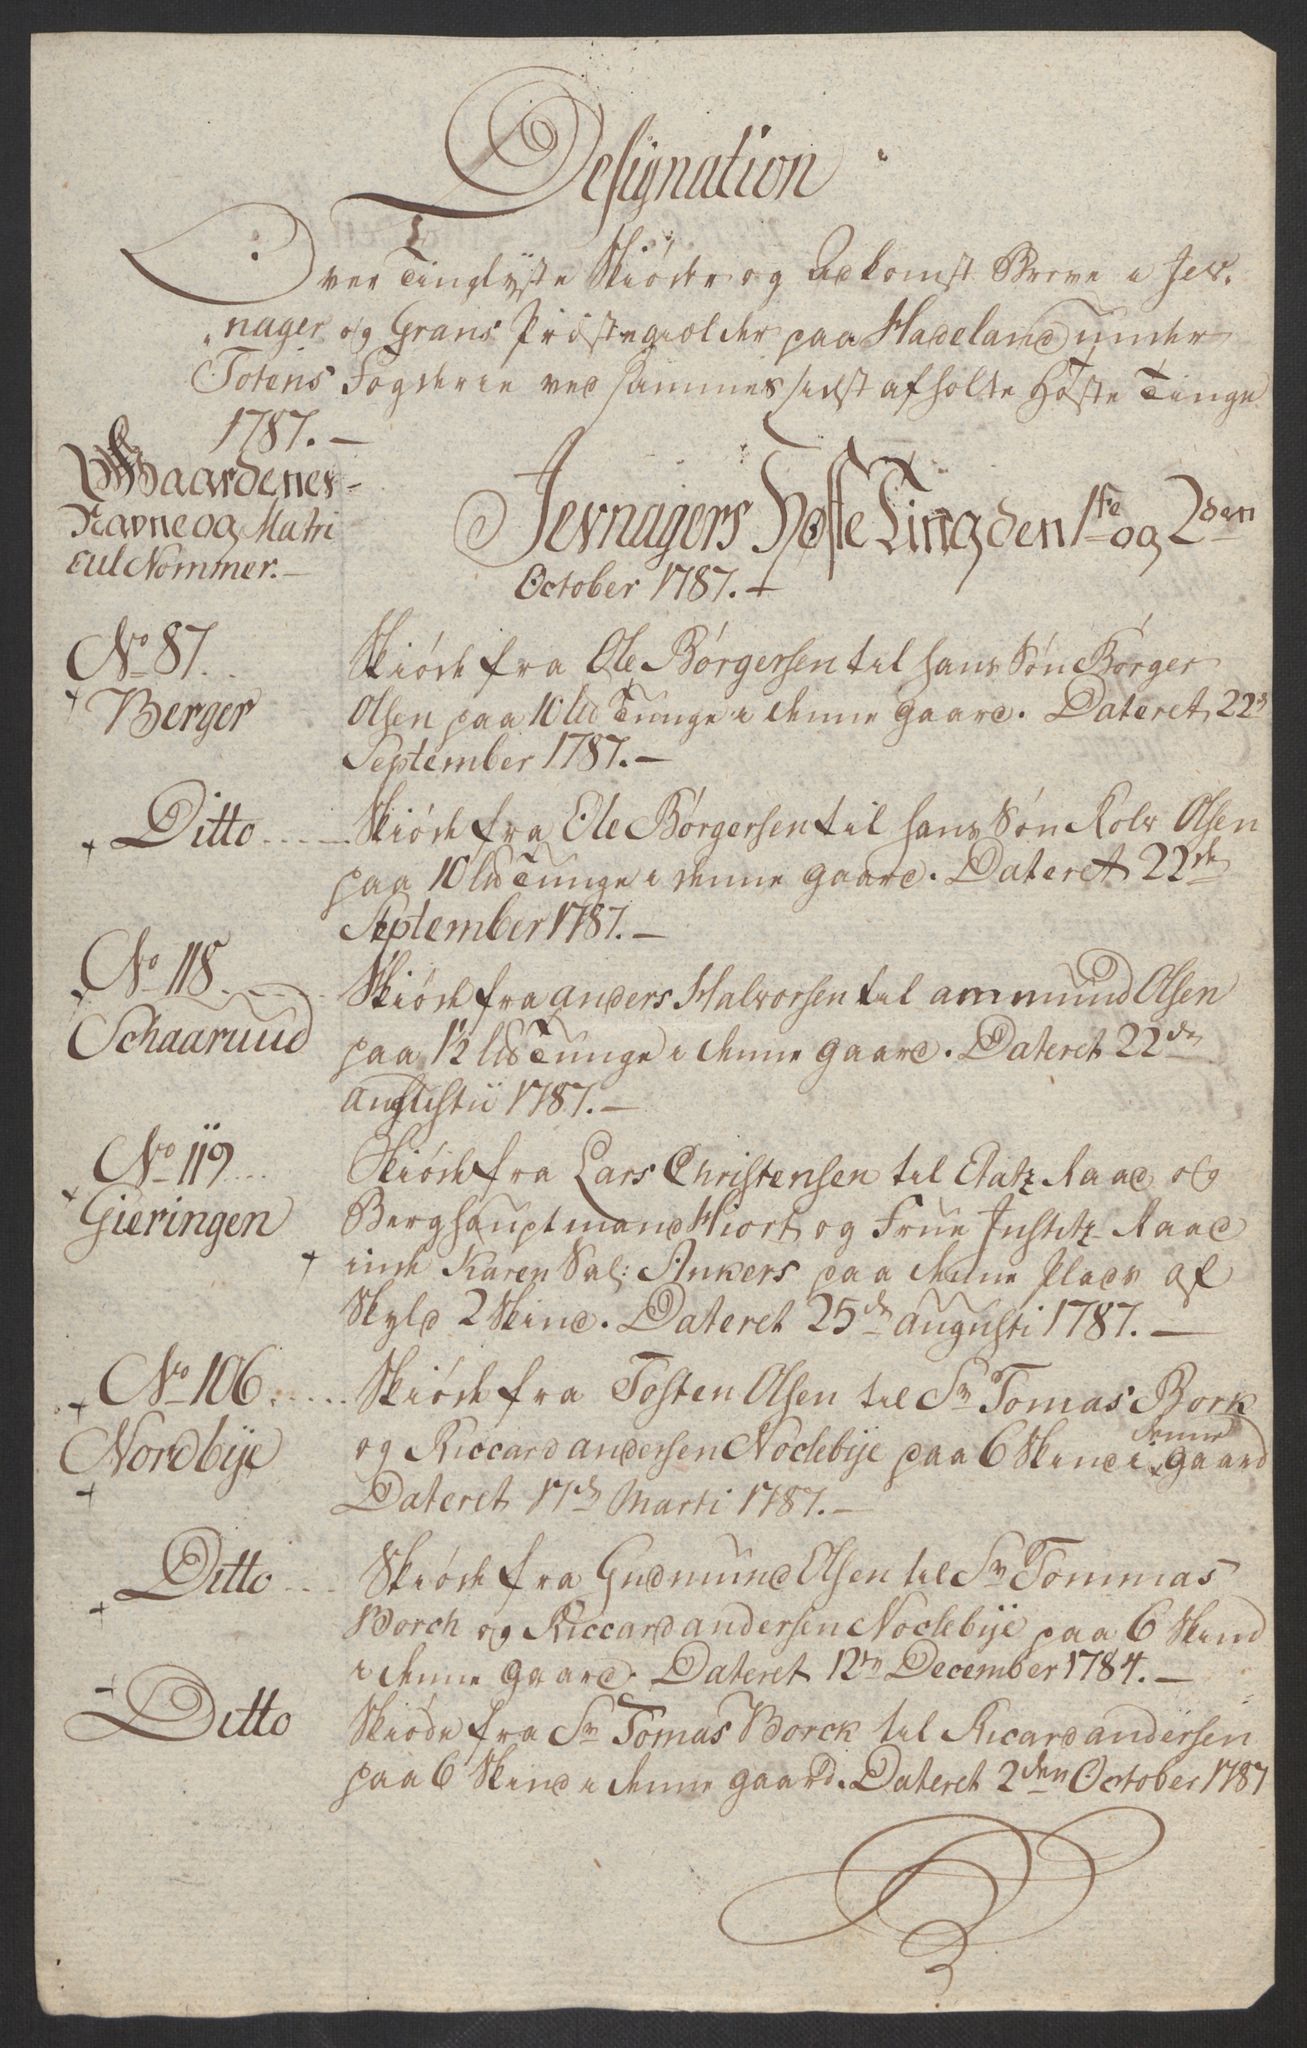 Designation
Over Tinglyste Skiöder og Adkomst Breve i Jev-
nager og Grans Præstegiolder paa Hadeland under
Totens Fogderie ved sammes sidst afholte Høste Tinge
1787.—
Gaardenes
Navne og Matri
cul Nommer.—
Jevnagers Høste Ting den 1ste og 2den
October 1787.—
No 87.
Berger
Skiöde fra Ole Börgersen til hans Sön Börger
Olsen paa 10 Lld Tunge i denne gaard. Dateret 22d
September 1787.—
Ditto
Skiöde fra Ole Börgersen til hans Sön Rolv Olsen
paa 10 Lld Tunge i denne gaard. Dateret 22de
September 1787.—
No 118
Schaaruud
Skiöde fra anders Halvorsen til ammund Olsen
paa 1½ Lld Tunge i denne gaard. Dateret 22de
augustii 1787.—
No 119
Gieringen
Skiöde fra Lars Christensen til Etatz Raad og
Berghauptmand Hiort og Frue Justitz Raad
inde Karen Sal: Ankers paa denne Plads af
Skyld 2 Skind. Dateret 25de augusti 1787.—
No 106
Nordbÿe
Skiöde fra Tosten Olsen til Sr Tomas Bork
og Riccard andersen Noclebÿe paa 6 Skind i denne gaard
Dateret 17de Marti 1787.—
Ditto
Skiöde fra Gudmund Olsen til Sr Tommas
Borch og Riccard andersen Noclebÿe paa 6 Skind
i denne gaard. Dateret 12te December 1784.—
Ditto
Skiöde fra Sr Tomas Borck til Ricard andersen
paa 6 Skind i denne gaard. Dateret 2den October 1787